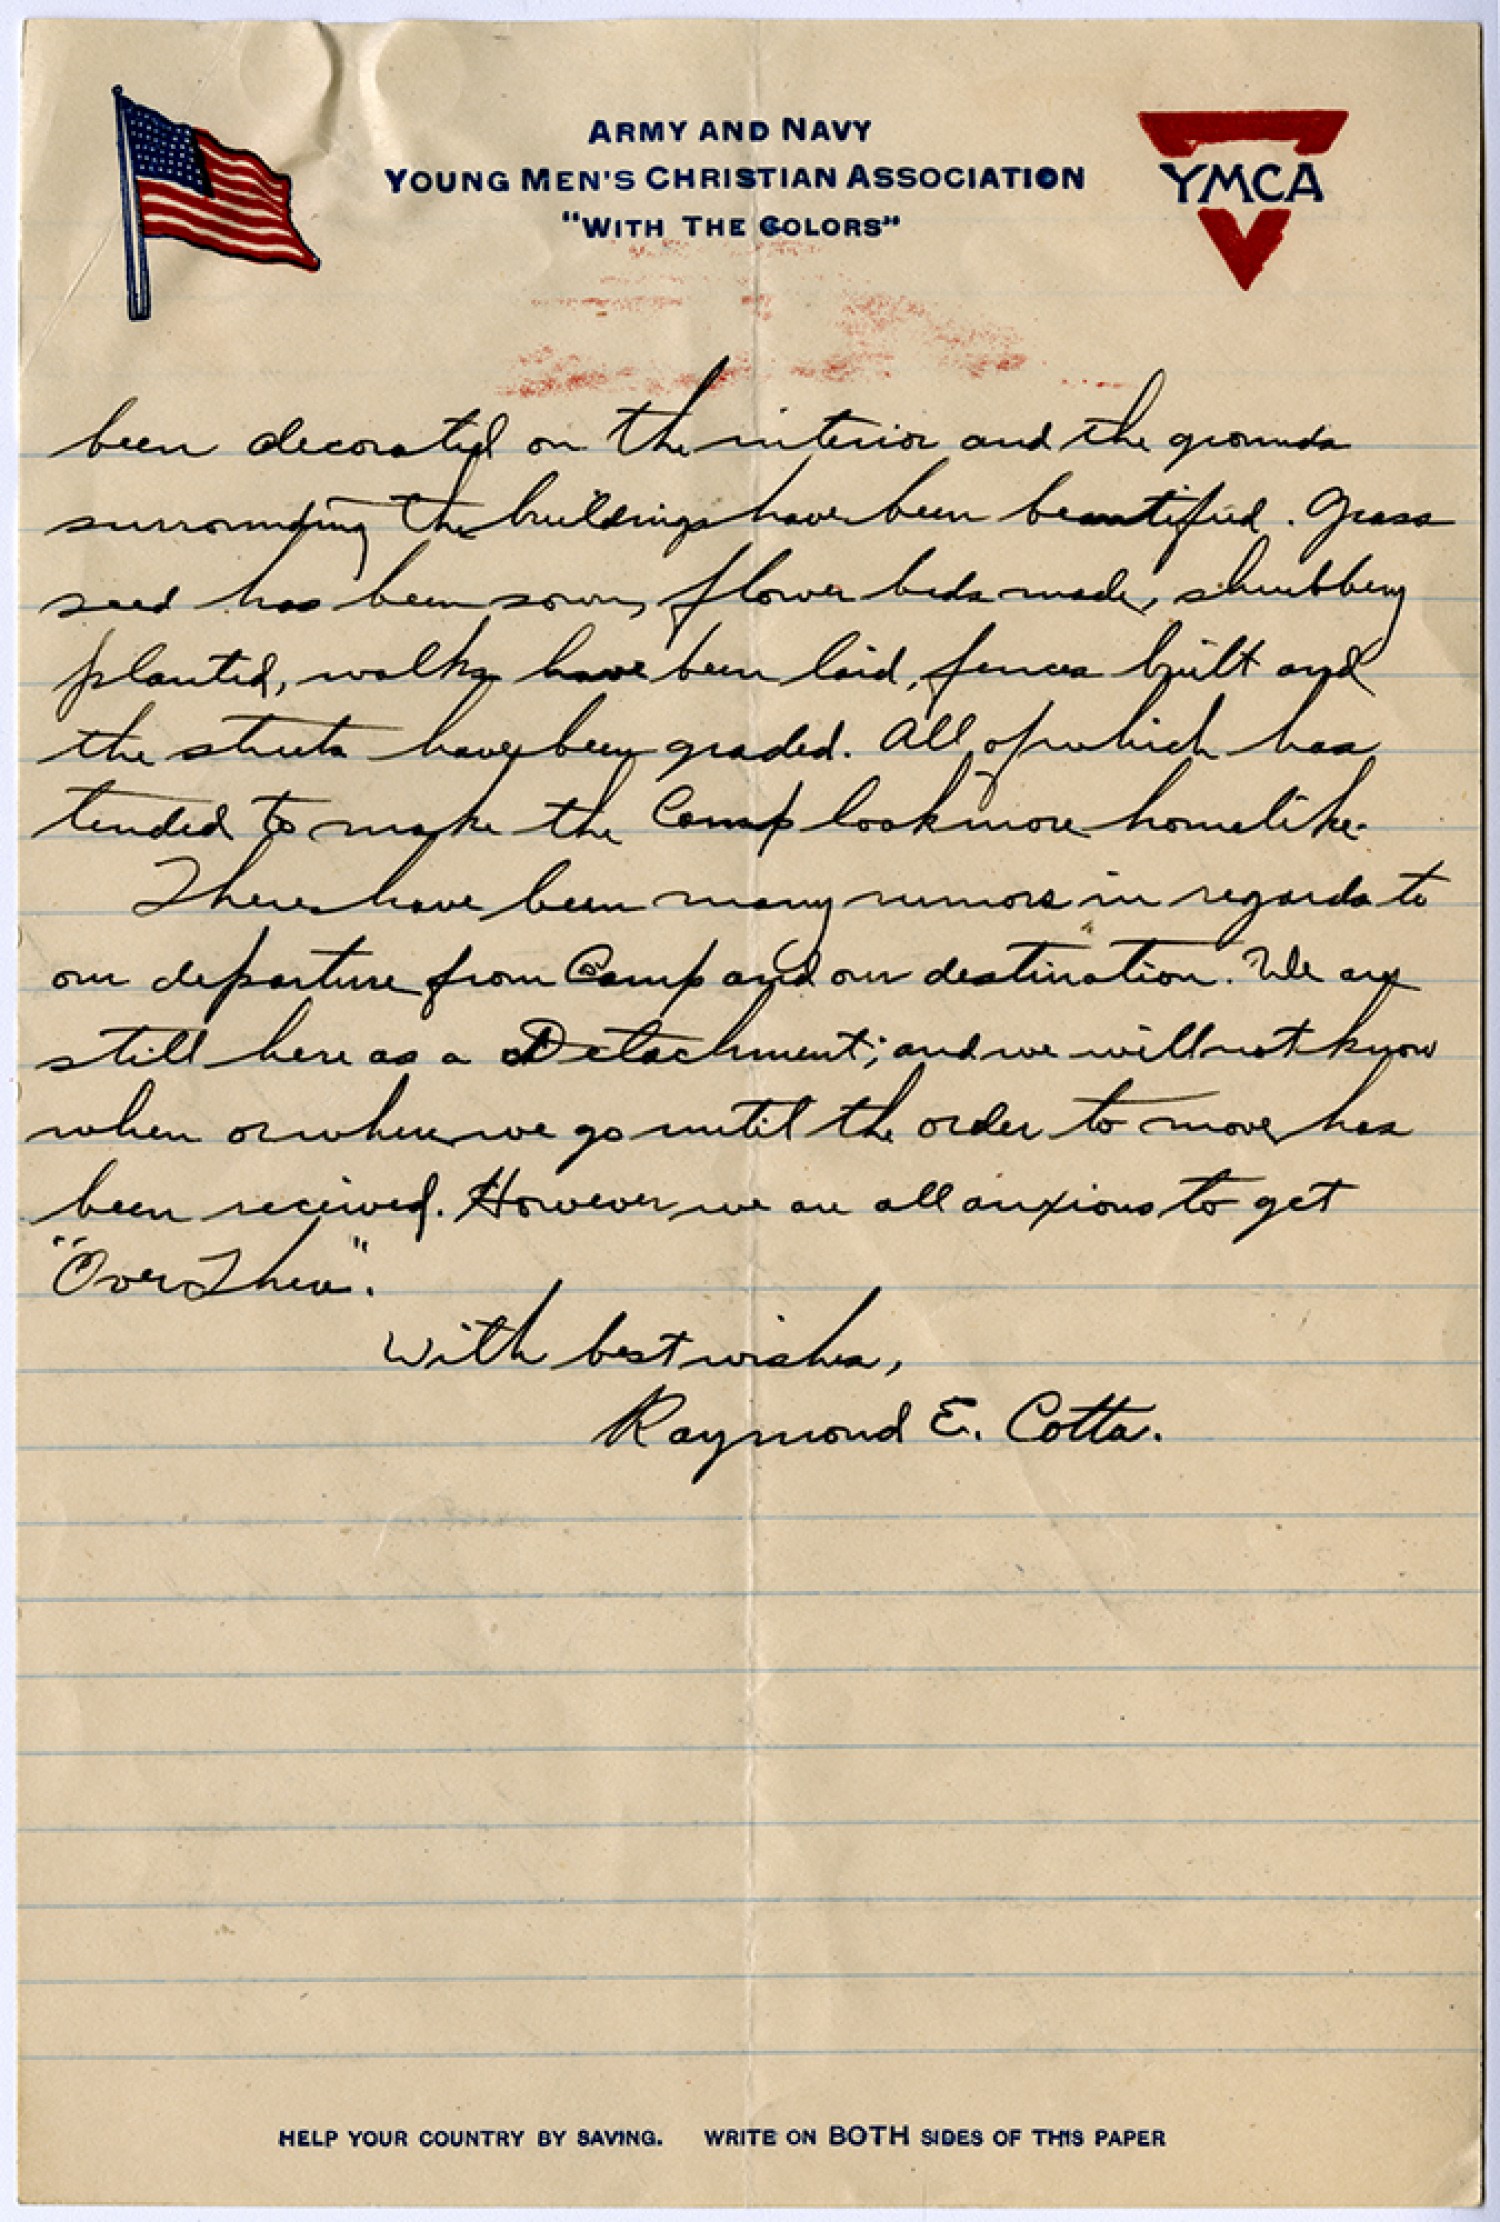 ARMY AND NAVY
YOUNG MEN'S CHRISTIAN ASSOCIATION
"WITH THE COLORS"
YMCA
been decorated on the interior and the grounds
surrounding the buildings have been beautified. Grass
seed has been sown, flower beds made, shrubbery
planted, walks have been laid, fences built and
the streets have been graded. All of which has
tended to make the Camp look more homelike.
There have been many rumors in regards to
our departure from Camp and our destination. We are
still here as a Detachment; and we will not know
when or where we go until the order to move has
been received. However we are all anxious to get
"Over There".
With best wishes,
Raymond E. Cotta.
HELP YOUR COUNTRY BY SAVING. WRITE ON BOTH SIDES OF THIS PAPER